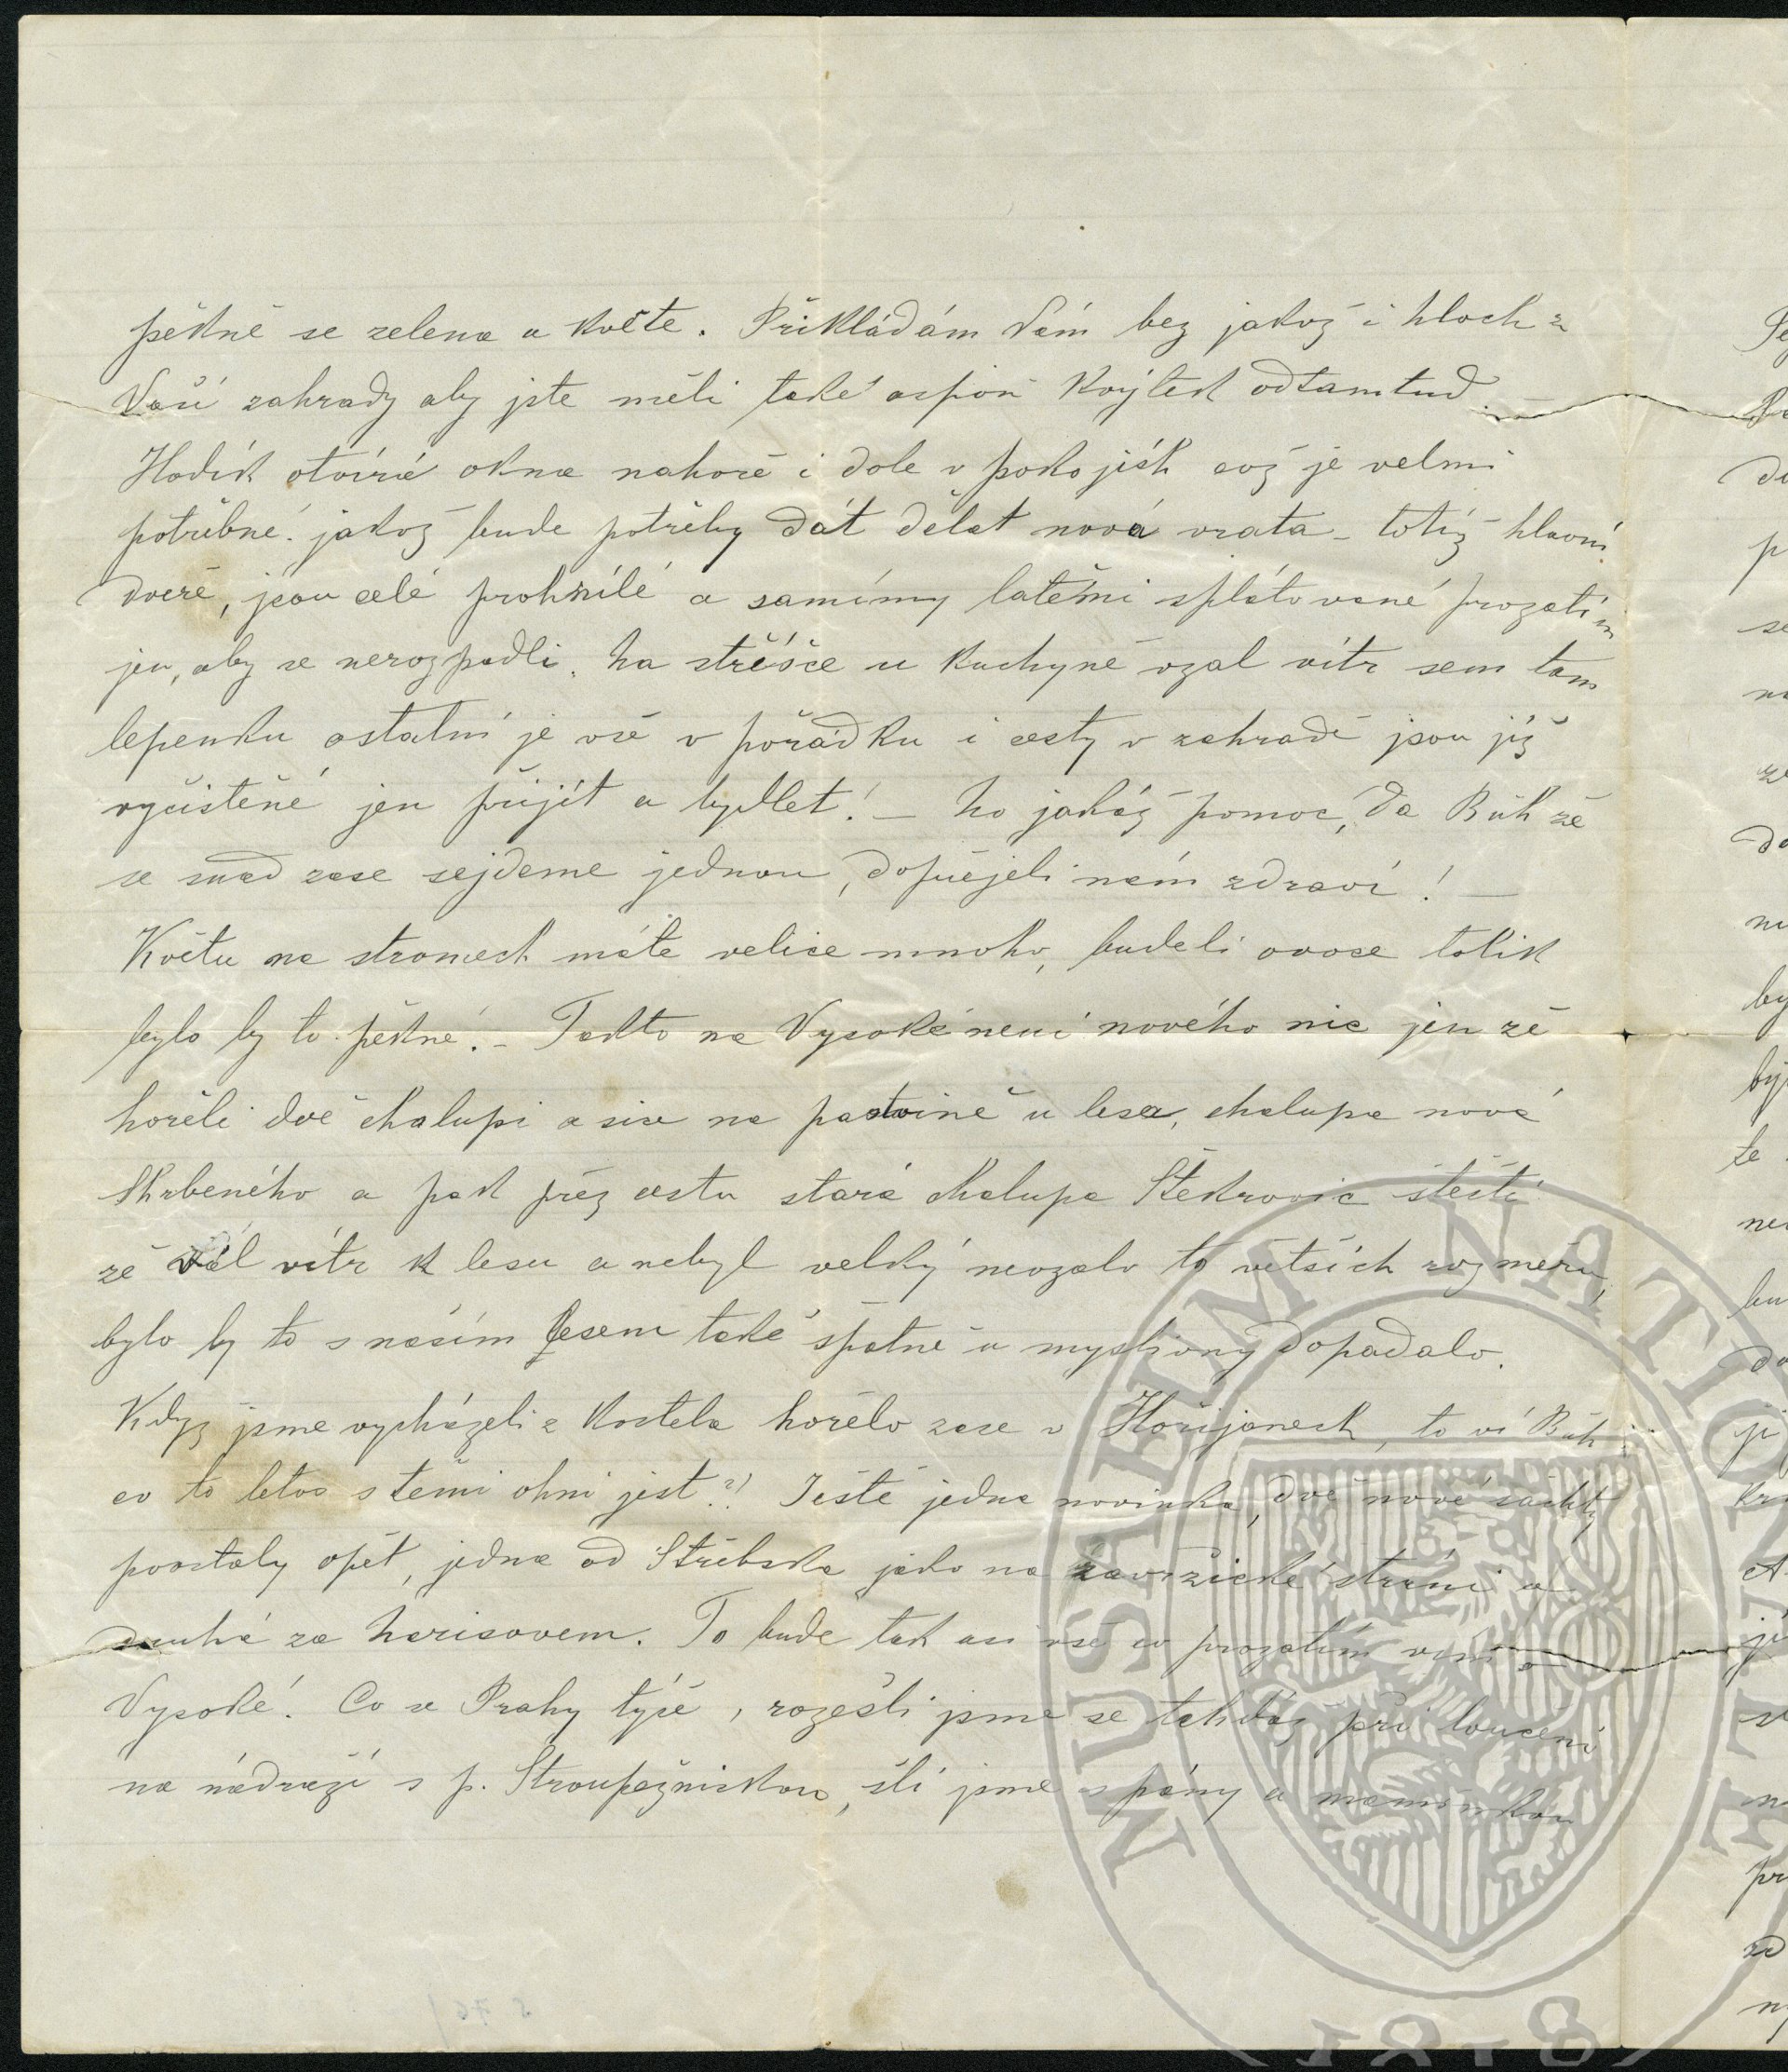 pěkně se zelena a květe. Přikládám Vám bez jakož i hloch z
Vaší zahrady aby jste měli také aspoń kvýtek odtamtud. —
Hodík otvírá okna nahoře i dole v pokojích což je velmi
potřebné. jakož bude potřeby dát dělat nová vrata – totiž hlavní
dveře, jsou celé prohnílé a samímy latěmi splátované prozatím
jen, aby se nerozpadli. na stříšce u kuchyně vzal vítr sem tam
lepenku ostatní je vše v pořádku i cesty v zahradě jsou již
vyčistěné jen přijít a bydlet! – No jakáž pomoc, da Bůh že
se snad zase sejdeme jednou, dopřejeli nám zdraví! —
Květu na stromech máte velice mnoho, budeli ovoce tolik
bylo by to pěkné. – Takto na Vysoké není nového nic jen že
hořeli dvě chalupi a sice na pastvině u lesa, chalupa nová
Skrbeného a pak přez cestu stará chalupa štěstí
že vál vítr k lesu a nebyl velký nevzalo to větších rozměru,
bylo by to s naším lesem také špatně u myslivny dopadalo.
Když jsme vycházeli z kostela hořelo zase v Hořijanech, to ví Bůh
co to letos s těmi ohni jest?! Ještě jedna novinka, dvě nové šachty
povstaly opět, jedna od Střebska jako na stráni a
druhá za harisovem. To bude tak asi vše co prozatím vím o
Vysoké. Co se Prahy týče, rozešli jsme se tehdáž při loučení
na nádraží s p. Stroupežniskou, šli jsme s pány a maminkou
MUSAEUM NATIONALE
1818